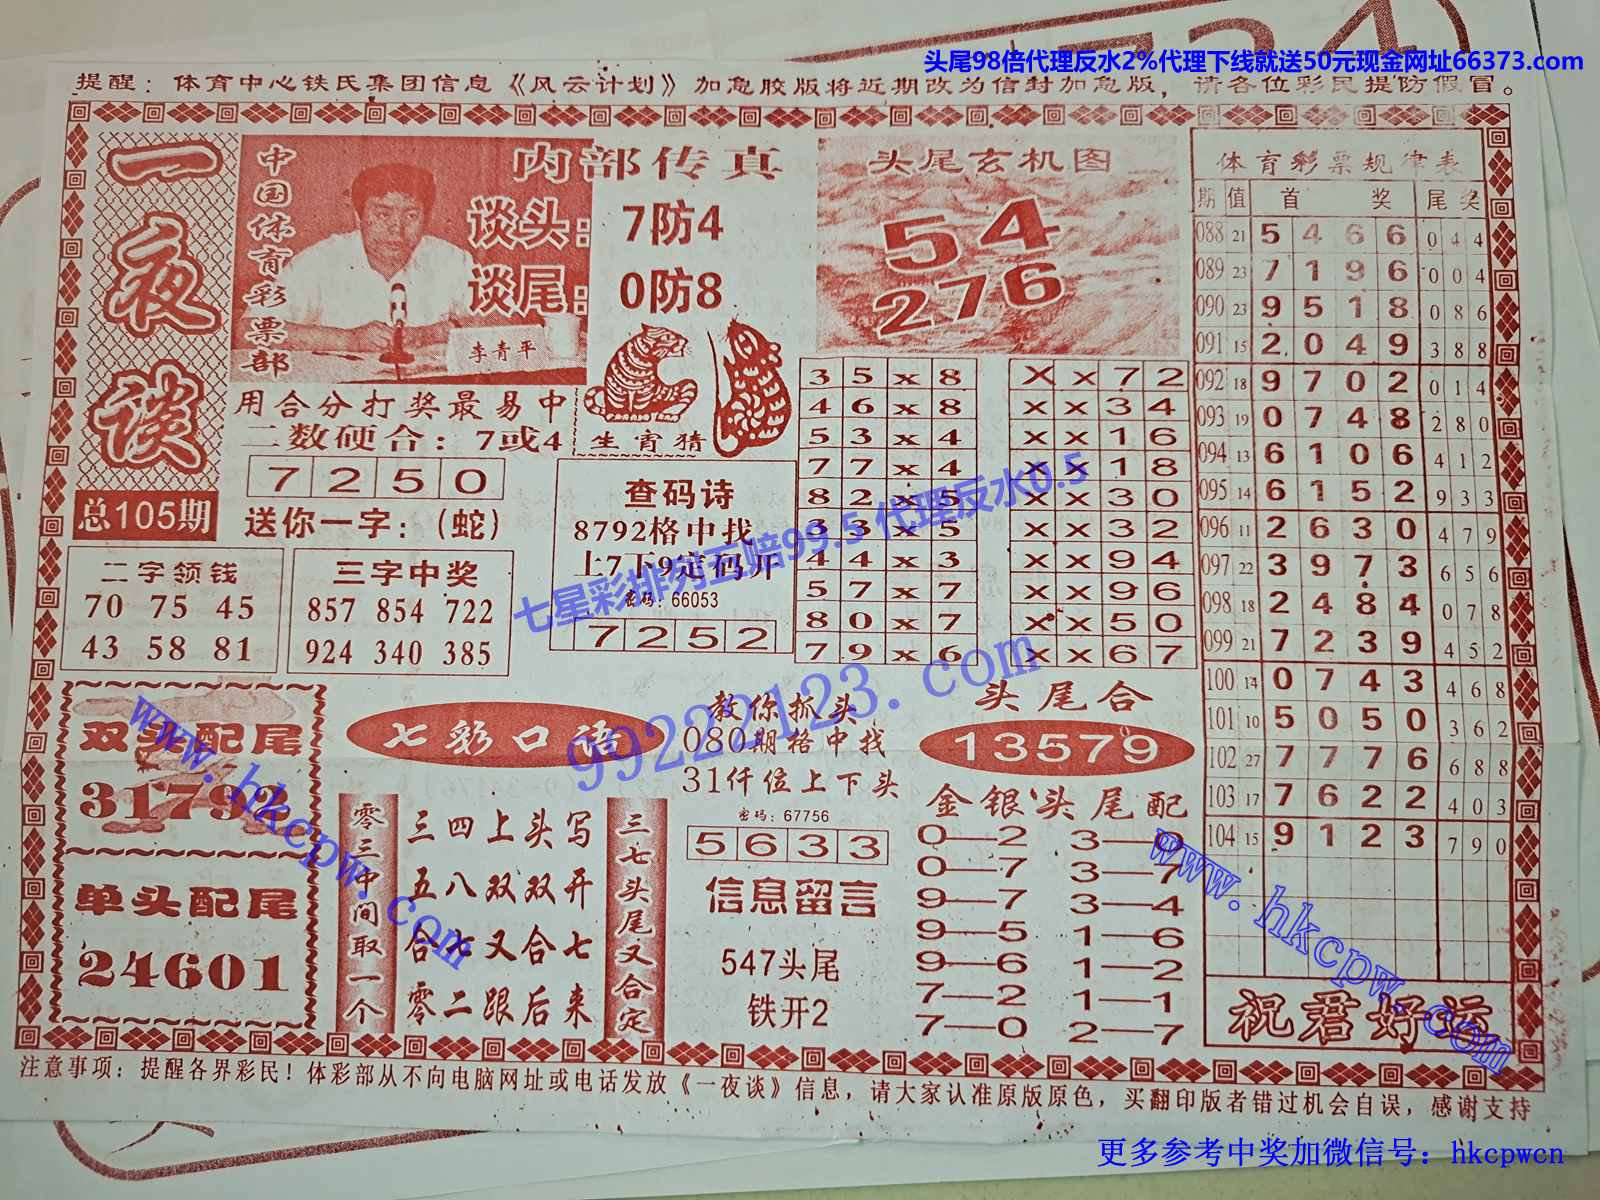 头尾98倍代理反水2%代理下线就送50元现金网址66373.com
提醒：体育中心铁氏集团信息《风云计划》加急胶版将近期改为信封加急版，请各位彩民提防假冒。
一夜谈
总105期
中国体育彩票部
内部传真
谈头：7防4
谈尾：0防8
李青平
用合分打奖最易中
二数硬合：7或4
7250
送你一字：(蛇)
生肖猜
二字领钱
70 75 45
43 58 81
三字中奖
857 854 722
924 340 385
查码诗
8792格中找
上7下9定码开
密码：66053
7252
头尾玄机图
54
276
35x8 xx72
46x8 xx34
53x4 xx16
77x4 xx18
82x5 xx30
33x5 xx32
44x3 xx94
57x7 xx96
80x7 xx50
79x6 xx67
体育彩票规律表
期 值 首 奖 尾 奖
088 21 5 4 6 6 0 4 4
089 23 7 1 9 6 0 0 4
090 23 9 5 1 8 0 8 6
091 15 2 0 4 9 3 8 8
092 18 9 7 0 2 0 1 4
093 19 0 7 4 8 2 8 0
094 13 6 1 0 6 4 1 2
095 14 6 1 5 2 9 3 3
096 11 2 6 3 0 4 7 9
097 22 3 9 7 3 6 5 6
098 18 2 4 8 4 0 7 8
099 21 7 2 3 9 4 5 2
100 14 0 7 4 3 4 6 8
101 10 5 0 5 0 3 6 2
102 27 7 7 7 6 6 8 8
103 17 7 6 2 2 4 0 3
104 15 9 1 2 3 7 9 0
祝君好运
双头配尾
31792
单头配尾
24601
七彩口语
零三中间取一个
三四上头写
五八双双开
合七又合七
零二跟后来
三七头尾又合定
教你抓头
080期格中找
31仟位上下头
密码：67756
5633
信息留言
547头尾
铁开2
头尾合
13579
金银头尾配
0—2 3—0
0—7 3—7
9—7 3—4
9—5 1—6
9—6 1—2
7—2 1—1
7—0 2—7
注意事项：提醒各界彩民！体彩部从不向电脑网址或电话发放《一夜谈》信息，请大家认准原版原色，买翻印版者错过机会自误，感谢支持
七星彩排列五赔99.5 代理反水0.5
99222123.com
www.hkcpw.com
www.hkcpw.com
更多参考中奖加微信号：hkcpwcn